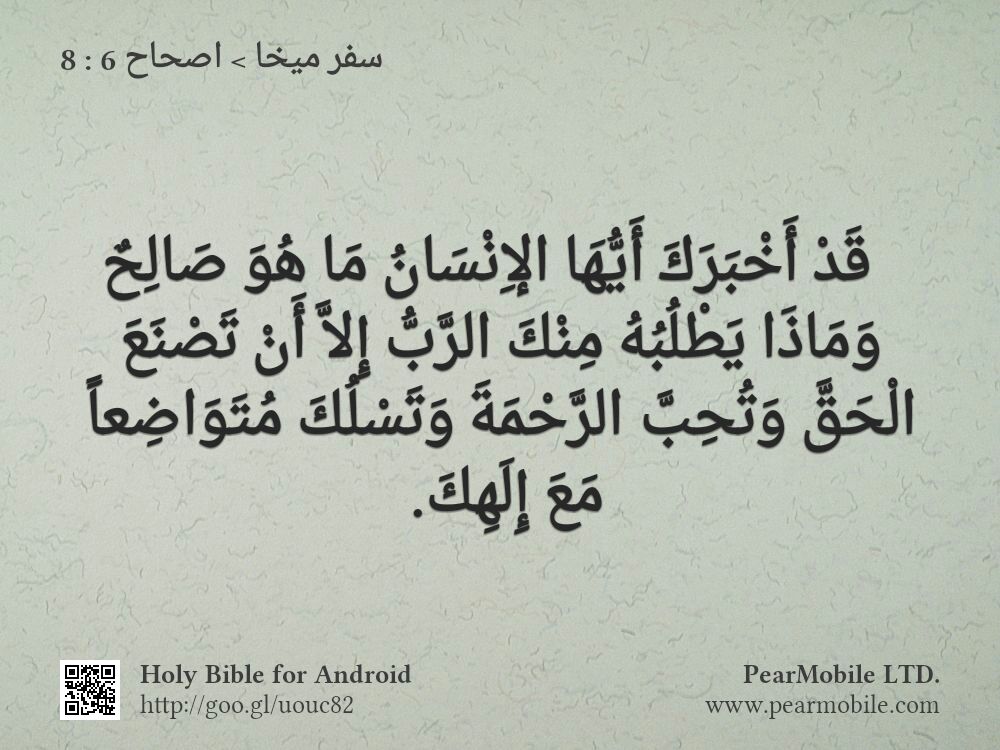 سفر ميخا > اصحاح 6 : 8
قَدْ أَخْبَرَكَ أَيُّهَا الإِنْسَانُ مَا هُوَ صَالِحٌ
وَمَاذَا يَطْلُبُهُ مِنْكَ الرَّبُّ إِلاَّ أَنْ تَصْنَعَ
الْحَقَّ وَتُحِبَّ الرَّحْمَةَ وَتَسْلُكَ مُتَوَاضِعاً
مَعَ إِلَهِكَ.
Holy Bible for Android
http://goo.gl/uouc82
PearMobile LTD.
www.pearmobile.com